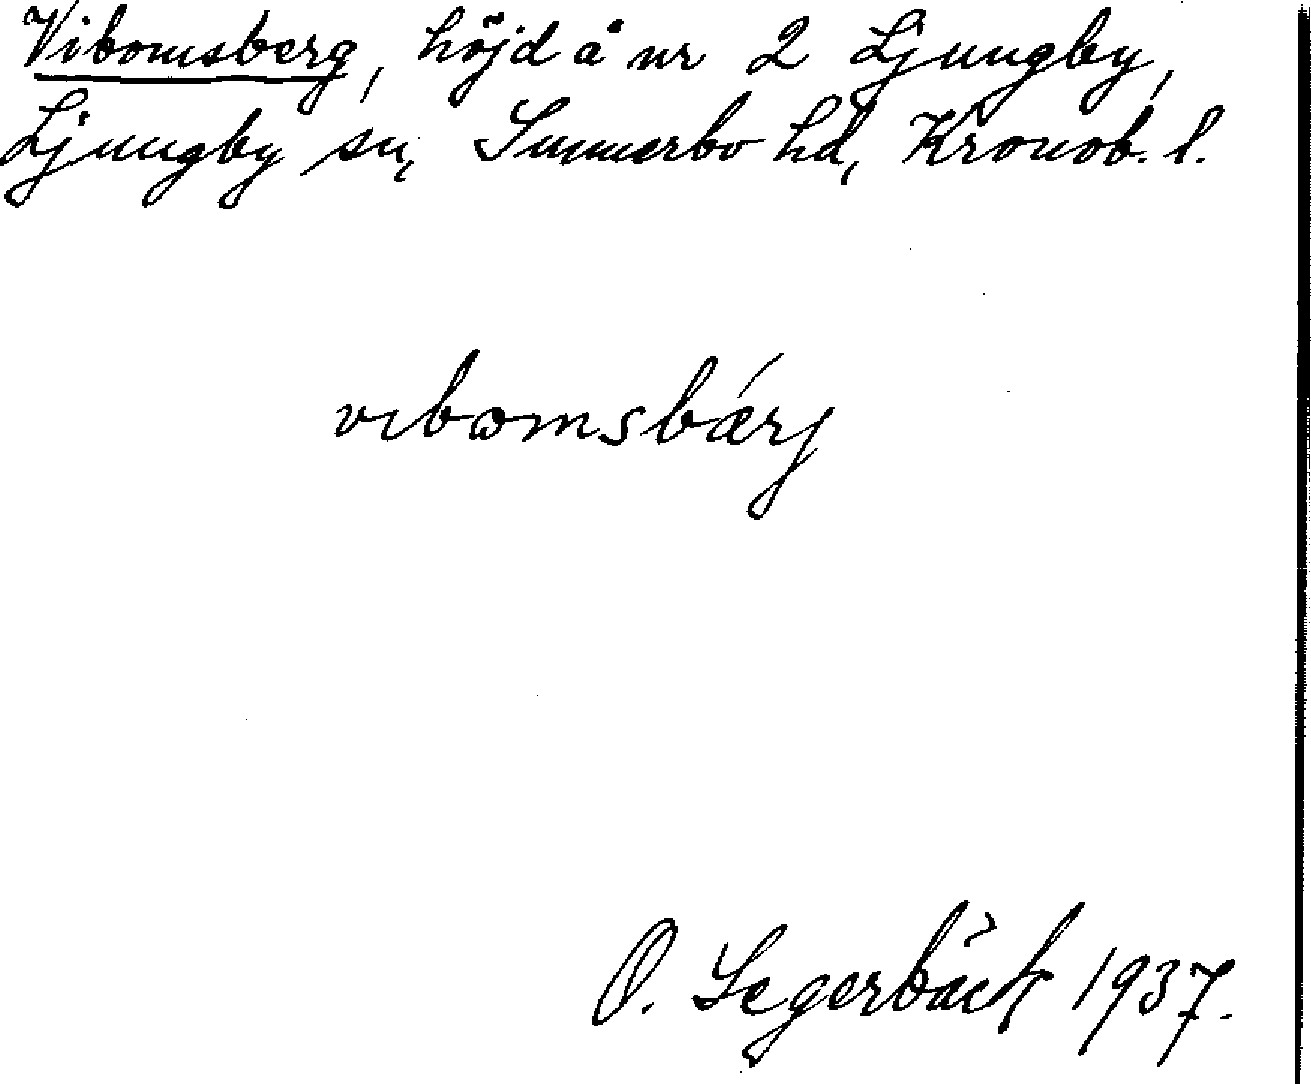 Vibomsberg, höjd å nr 2 Ljungby,
Ljungby sn, Sunnerbo hd, Kronob. l.
vıbωmsbǽrj
O. Segerbäck 1937.